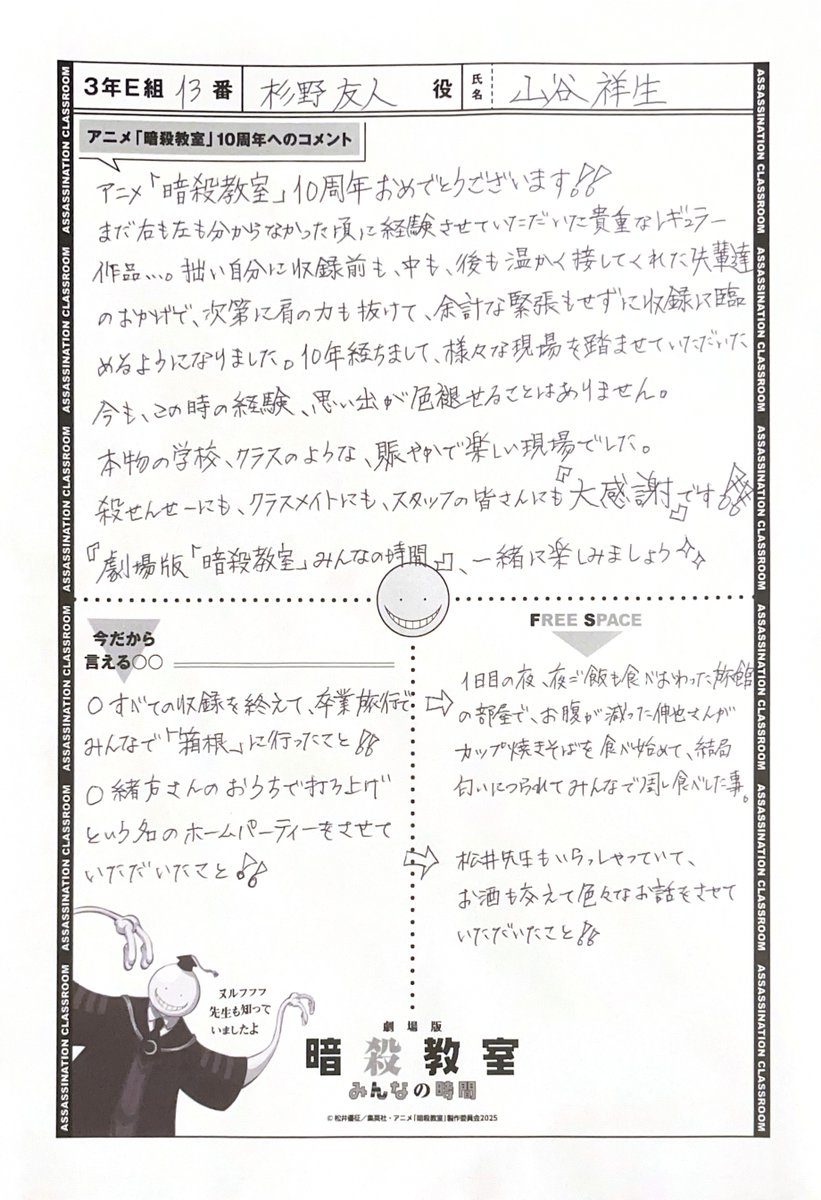 3年E組 13番 杉野友人 役 氏名 山谷祥生
アニメ「暗殺教室」10周年へのコメント
アニメ「暗殺教室」10周年おめでとうございます!!
まだ右も左も分からなかった頃に経験させていただいた貴重なレギュラー
作品…。拙い自分に収録前も、中も、後も温かく接してくれた先輩達
のおかげで、次第に肩の力も抜けて、余計な緊張もせずに収録に臨
めるようになりました。10年経ちまして、様々な現場を踏ませていただいた
今も、この時の経験、思い出が色褪せることはありません。
本物の学校、クラスのような、賑やかで楽しい現場でした。
殺せんせーにも、クラスメイトにも、スタッフの皆さんにも『大感謝』です!!
『劇場版「暗殺教室」みんなの時間』、一緒に楽しみましょう
今だから
言える○○
○すべての収録を終えて、卒業旅行で
みんなで「箱根」に行ったこと!!
○緒方さんのおうちで打ち上げ
という名のホームパーティーをさせて
いただいたこと!!
FREE SPACE
⇨ 1日目の夜、夜ご飯も食べおわった旅館
の部屋で、お腹が減った伸也さんが
カップ焼きそばを食べ始めて、結局
匂いにつられてみんなで回し食べした事。
⇨ 松井先生もいらっしゃっていて、
お酒も交えて色々なお話をさせて
いただいたこと!!
ヌルフフフ
先生も知って
いましたよ
劇場版
暗殺教室
みんなの時間
© 松井優征／集英社・アニメ「暗殺教室」製作委員会2025
ASSASSINATION CLASSROOM ASSASSINATION CLASSROOM ASSASSINATION CLASSROOM ASSASSINATION CLASSROOM ASSASSINATION CLASSROOM ASSASSINATION CLASSROOM
ASSASSINATION CLASSROOM ASSASSINATION CLASSROOM ASSASSINATION CLASSROOM ASSASSINATION CLASSROOM ASSASSINATION CLASSROOM ASSASSINATION CLASSROOM